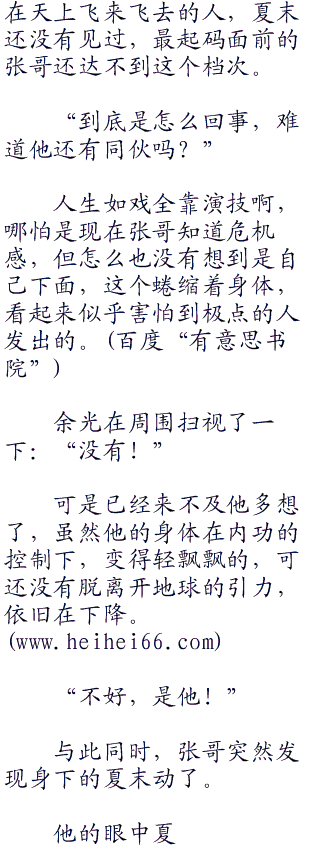 在天上飞来飞去的人，夏末
还没有见过，最起码面前的
张哥还达不到这个档次。
“到底是怎么回事，难
道他还有同伙吗？”
人生如戏全靠演技啊，
哪怕是现在张哥知道危机
感，但怎么也没有想到是自
己下面，这个蜷缩着身体，
看起来似乎害怕到极点的人
发出的。(百度“有意思书
院”)
余光在周围扫视了一
下：“没有！”
可是已经来不及他多想
了，虽然他的身体在内功的
控制下，变得轻飘飘的，可
还没有脱离开地球的引力，
依旧在下降。
(www.heihei66.com)
“不好，是他！”
与此同时，张哥突然发
现身下的夏末动了。
他的眼中夏